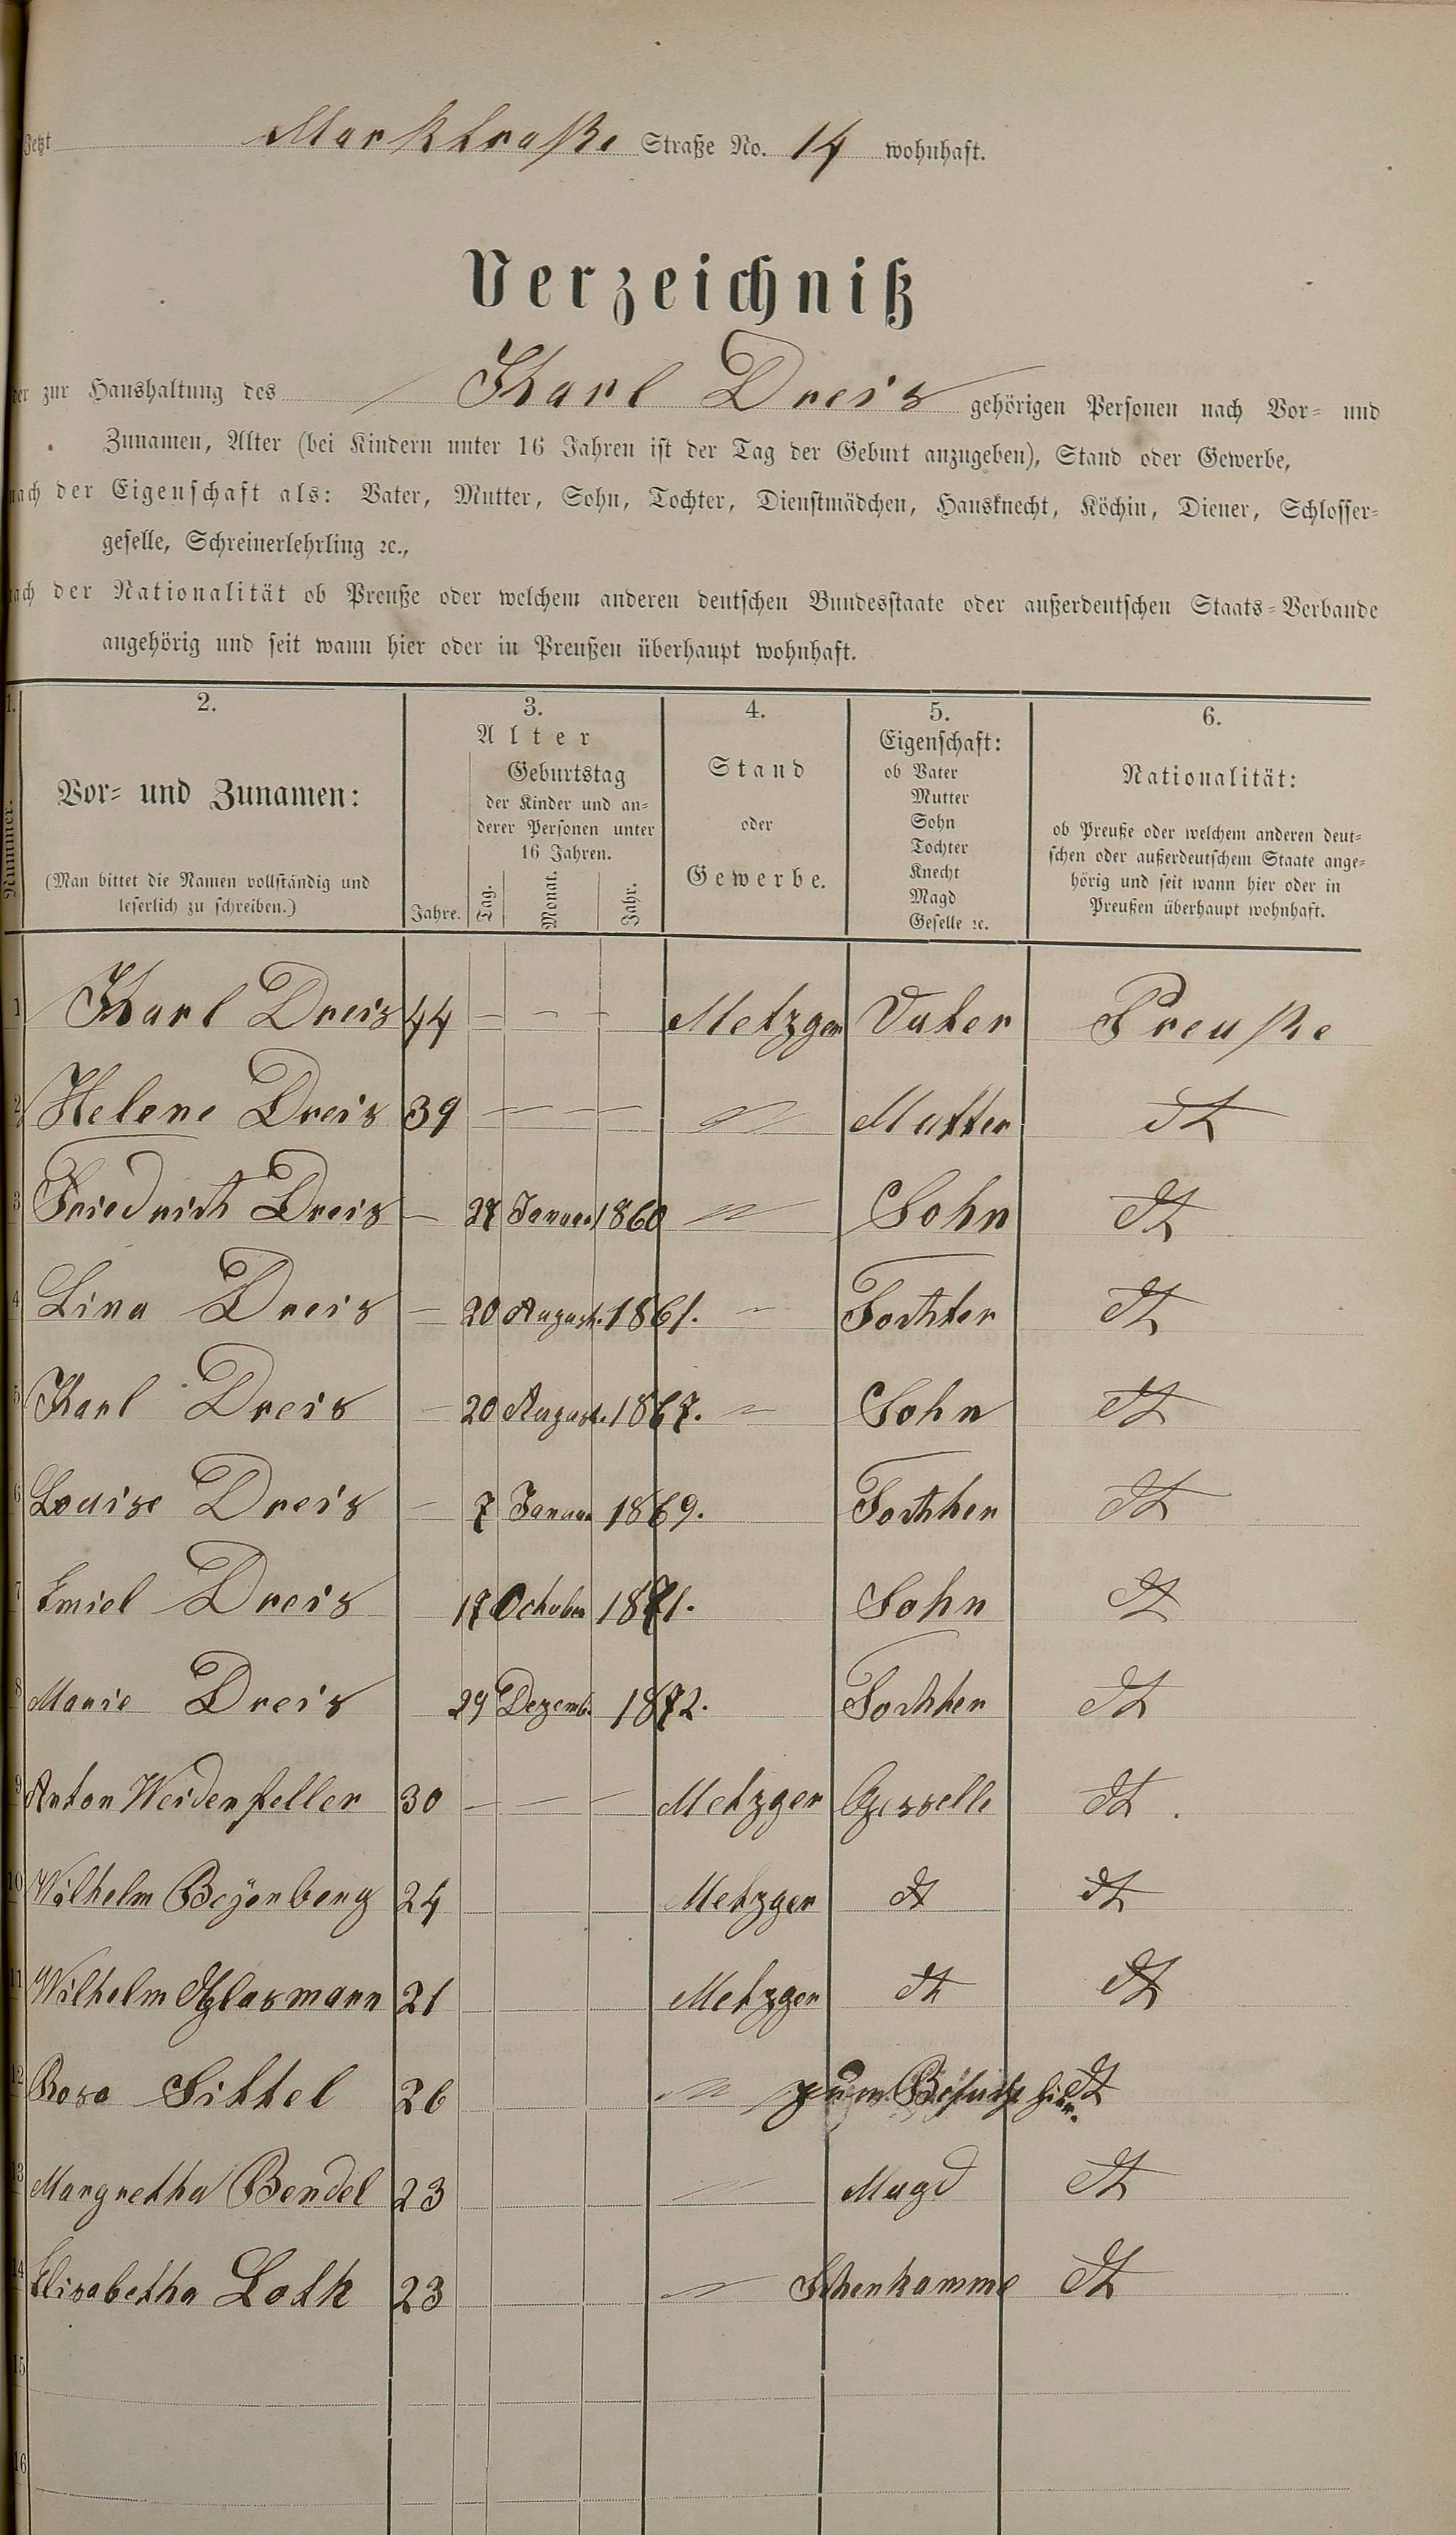 Jetzt Markstraße Straße No. 14 wohnhaft.
Verzeichniß
der zur Haushaltung des Karl Dreis gehörigen Personen nach Vor- und
Zunamen, Alter (bei Kindern unter 16 Jahren ist der Tag der Geburt anzugeben), Stand oder Gewerbe,
nach der Eigenschaft als: Vater, Mutter, Sohn, Tochter, Dienstmädchen, Hausknecht, Köchin, Diener, Schlosser-
geselle, Schreinerlehrling ꝛc.,
nach der Nationalität ob Preuße oder welchem anderen deutschen Bundesstaate oder außerdeutschen Staats-Verbande
angehörig und seit wann hier oder in Preußen überhaupt wohnhaft.
1. 2. 3. 4. 5. 6.
Nummer.
Vor- und Zunamen:
(Man bittet die Namen vollständig und
leserlich zu schreiben.)
Alter
Jahre.
Geburtstag
der Kinder und an-
derer Personen unter
16 Jahren.
Tag. Monat. Jahr.
Stand
oder
Gewerbe.
Eigenschaft:
ob Vater
Mutter
Sohn
Tochter
Knecht
Magd
Geselle ꝛc.
Nationalität:
ob Preuße oder welchem anderen deut-
schen oder außerdeutschem Staate ange-
hörig und seit wann hier oder in
Preußen überhaupt wohnhaft.
1 Karl Dreis 44 — — — Metzger Vater Preuße
2 Helene Dreis 39 — — — " Mutter dt
3 Friedrich Dreis — 27 Januar 1860 " Sohn dt
4 Lina Dreis — 20 August. 1861. " Tochter dt
5 Karl Dreis — 20 August. 1867. " Sohn dt
6 Louise Dreis — 7 Januar 1869. Tochter dt
7 Emiel Dreis 17 October 1871. Sohn dt
8 Marie Dreis 29 Dezemb. 1872. Tochter dt
9 Anton Weidenfeller 30 — — — Metzger Gesselle dt.
10 Wilhelm Beÿenberg 24 Metzger dt dt
11 Wilhelm Glasmann 21 Metzger dt dt
12 Rosa Sittel 26 " zum Besuche hier. dt
13 Margretha Bendel 23 " Magd dt
14 Elisabetha Loth 23 " Schenkamme dt
15
16